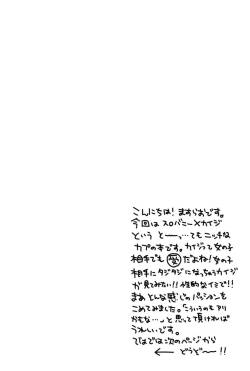 こんにちは！ますらおです。
今回はスロバニー×カイジ
という とーっ…てもニッチな
カプの本です。カイジって女の子
相手でも 受 だよね！女の子
相手にタジタジになっちゃうカイジ
が見てみたい!!性的なイミで!!
まぁ とんな感じのパッションを
こめてみました。「こういうのも アリ
かもな…」と思って頂ければ
うれしいです。
ではでは次のページから
← どうぞ〜!!